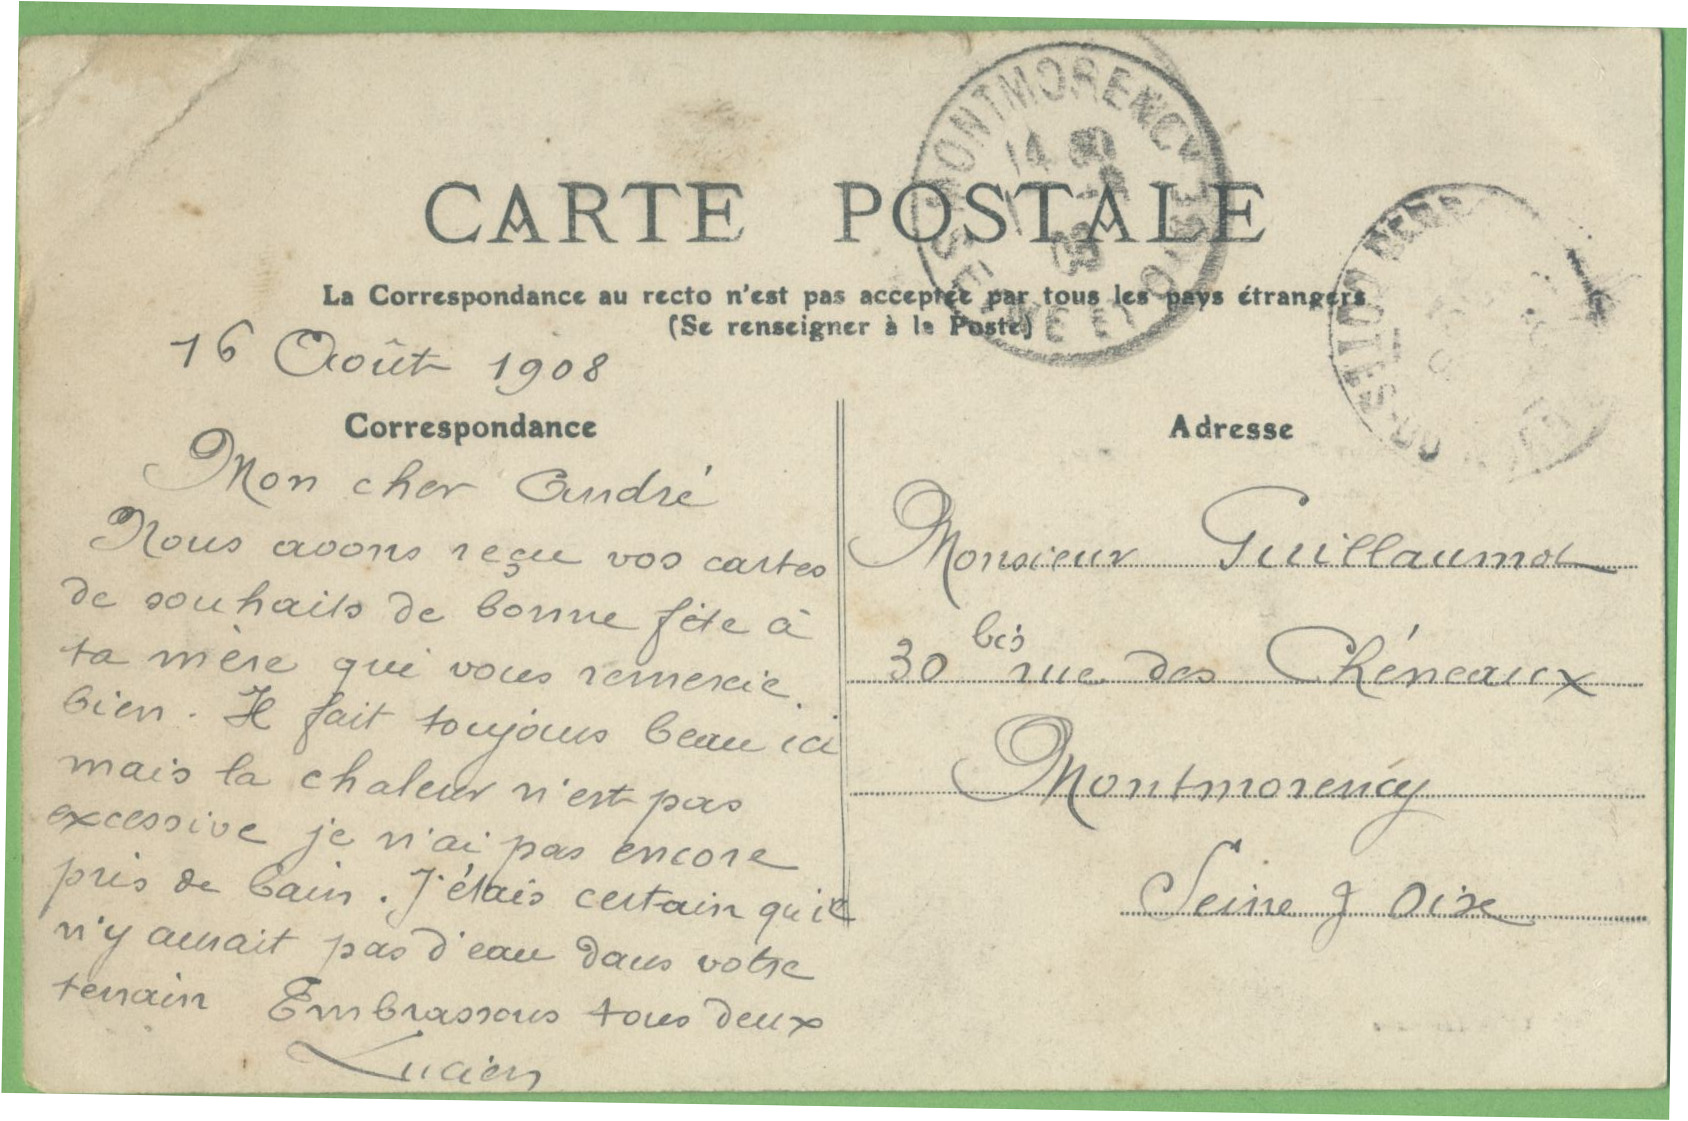 CARTE POSTALE
La Correspondance au recto n'est pas acceptée par tous les pays étrangers
(Se renseigner à la Poste)
MONTMORENCY
SEINE ET OISE
16 Août 1908
Correspondance
Mon cher André
Nous avons reçu vos cartes
de souhaits de bonne fête à
ta mère qui vous remercie
bien. Il fait toujours beau ici
mais la chaleur n'est pas
excessive je n'ai pas encore
pris de bain. J'étais certain qu'il
n'y aurait pas d'eau dans votre
terrain Embrassons tous deux
Lucien
Adresse
Monsieur Guillaumot
30 bis rue des Chéneaux
Montmorency
Seine & Oise